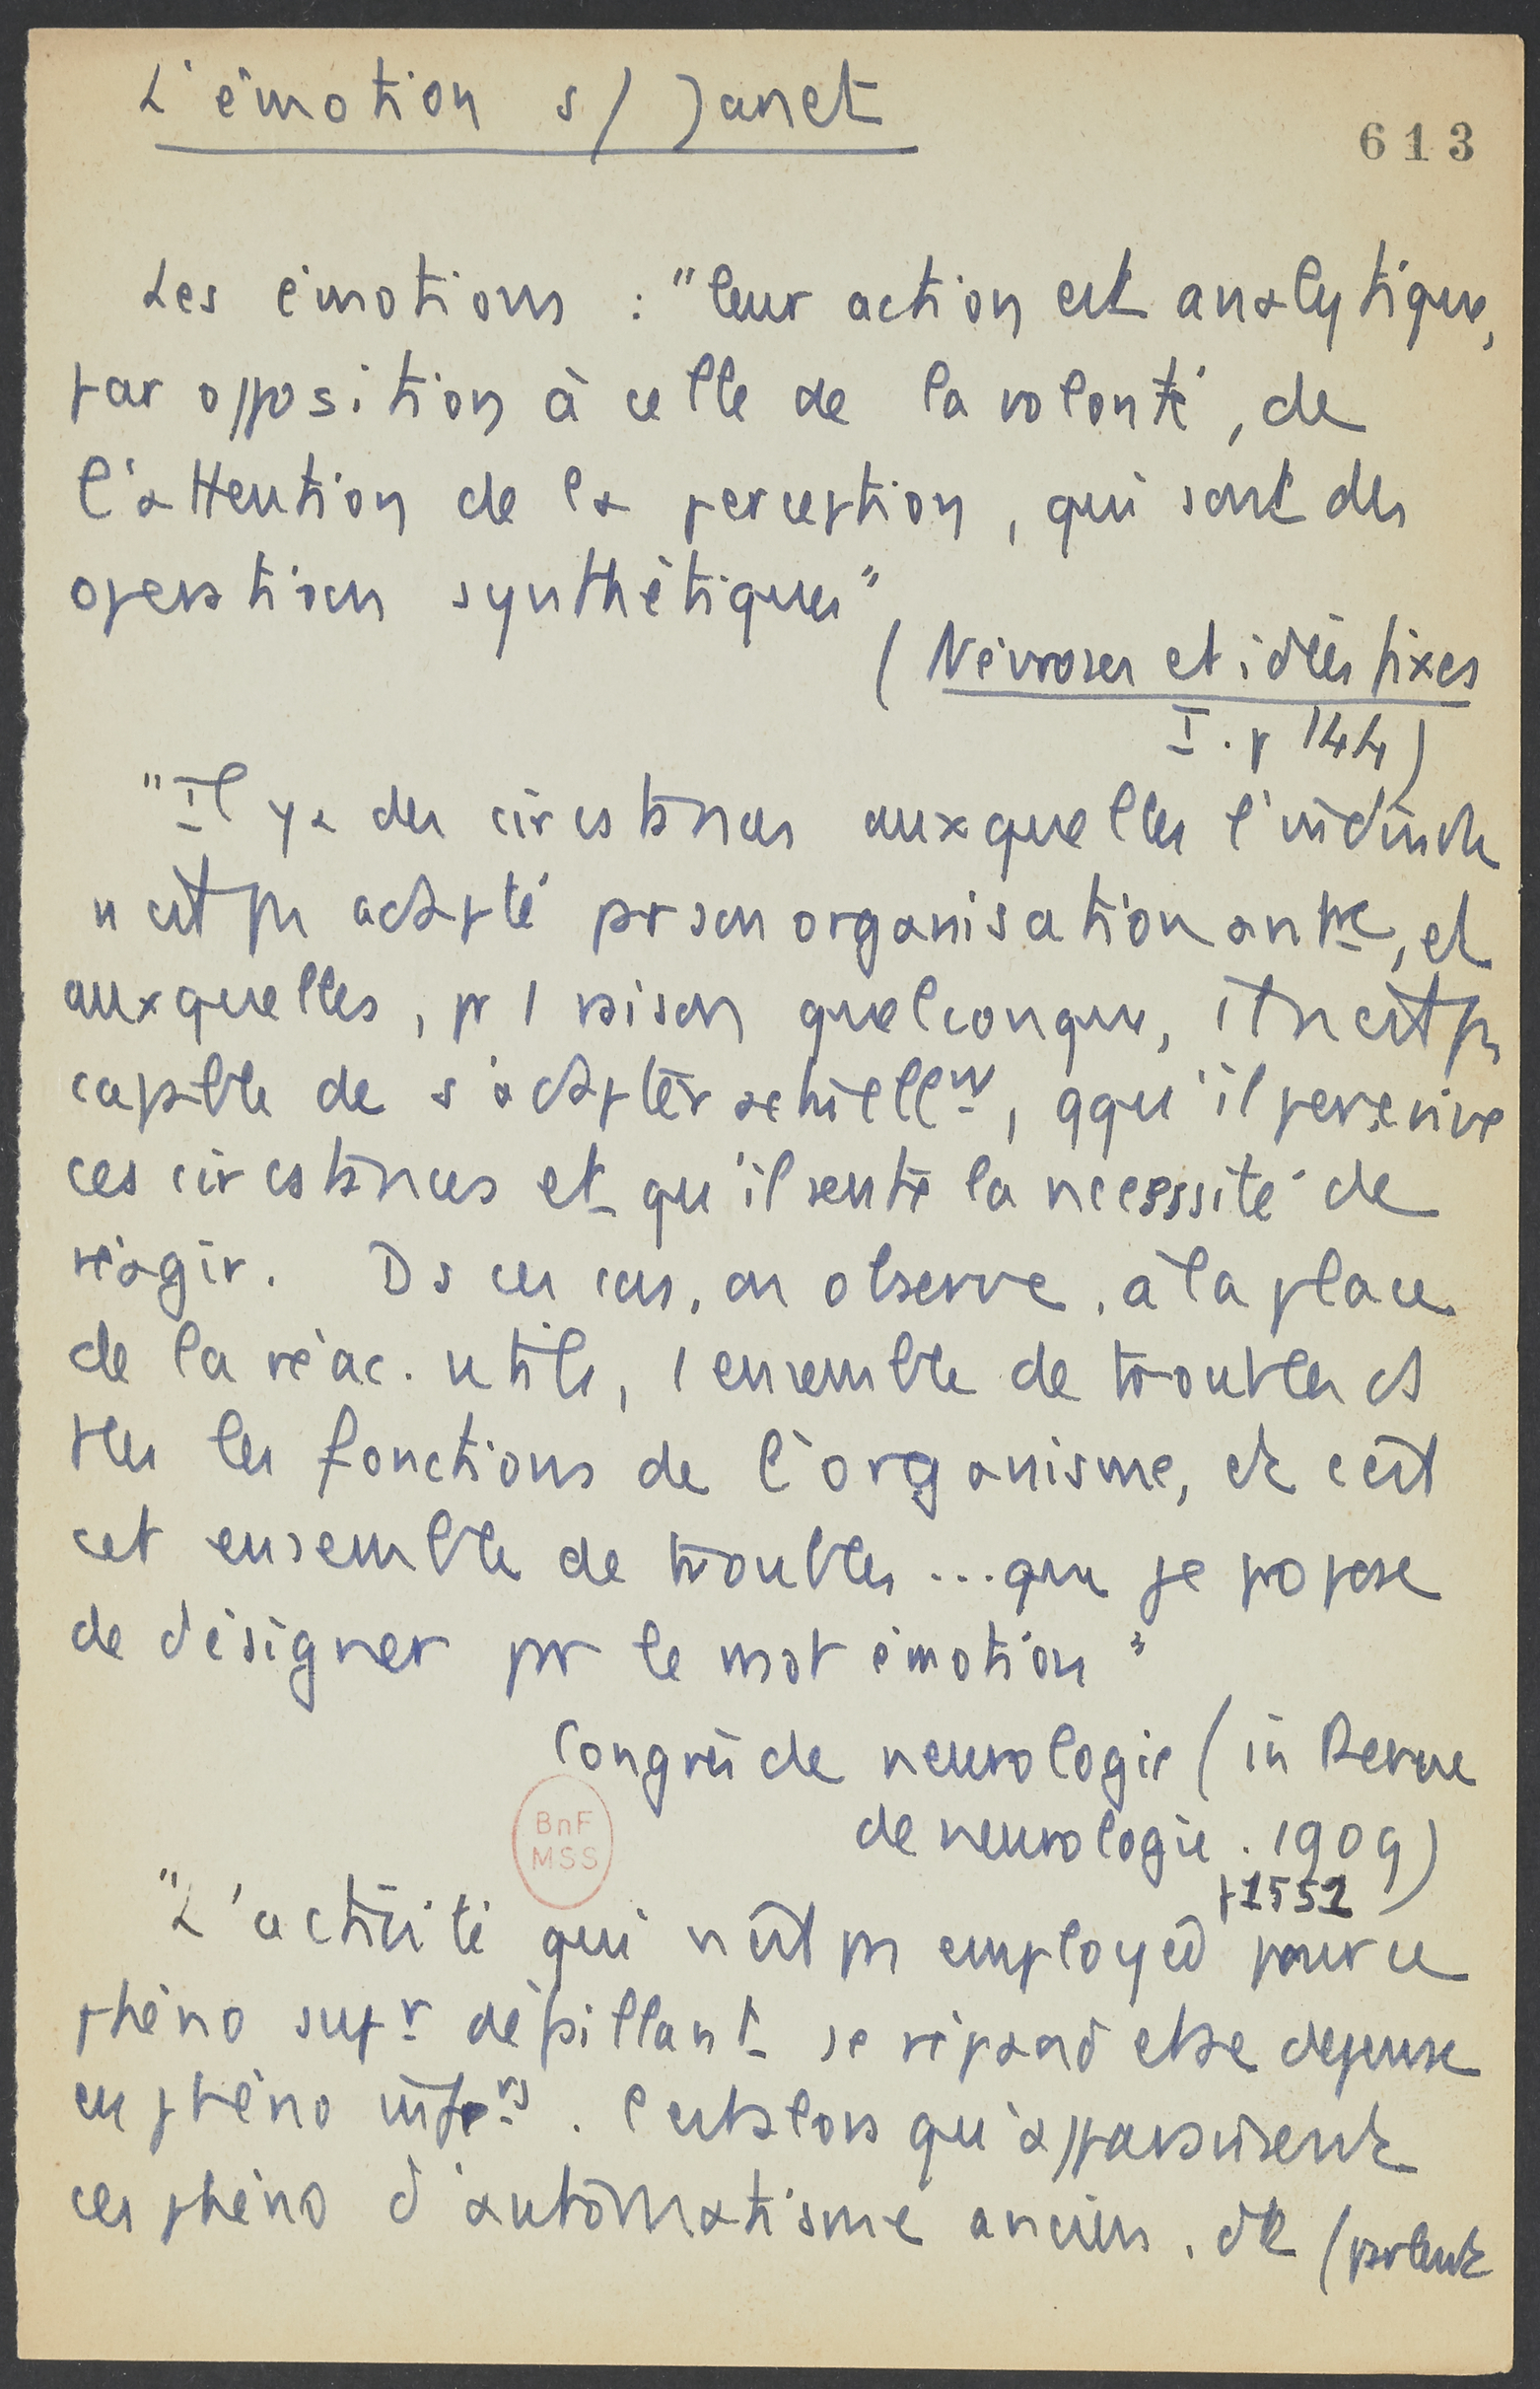 L'émotion s/ Janet
613
Les émotions : "leur action est analytique,
par opposition à celle de la volonté, de
l'attention de la perception, qui sont des
operations synthétiques"
(Névroses et idées fixes
I. p 144)
"Il y a des circstances auxquelles l'individu
n'est pas adapté par son organisation antre, et
auxquelles, pr 1 raison quelconque, il n'est pas
capable de s'adapter actuellt, qqu'il perçoive
ces circstances et qu'il sente la necessité de
réagir. Ds ces cas, on observe, à la place
de la réac. utile, 1 ensemble de troubles ds
ttes les fonctions de l'organisme, et c'est
cet ensemble de troubles ... que je propose
de désigner par le mot émotion"
Congrès de neurologie (in Revue
de neurologie. 1909)
p1551
BnF
MSS
"L'activité qui n'est pas employée pour ce
phéno supr défaillant se répand et se depense
en phéno infrs. C'est alors qu'apparaissent
ces phéno d'automatisme anciens, etc (parlent